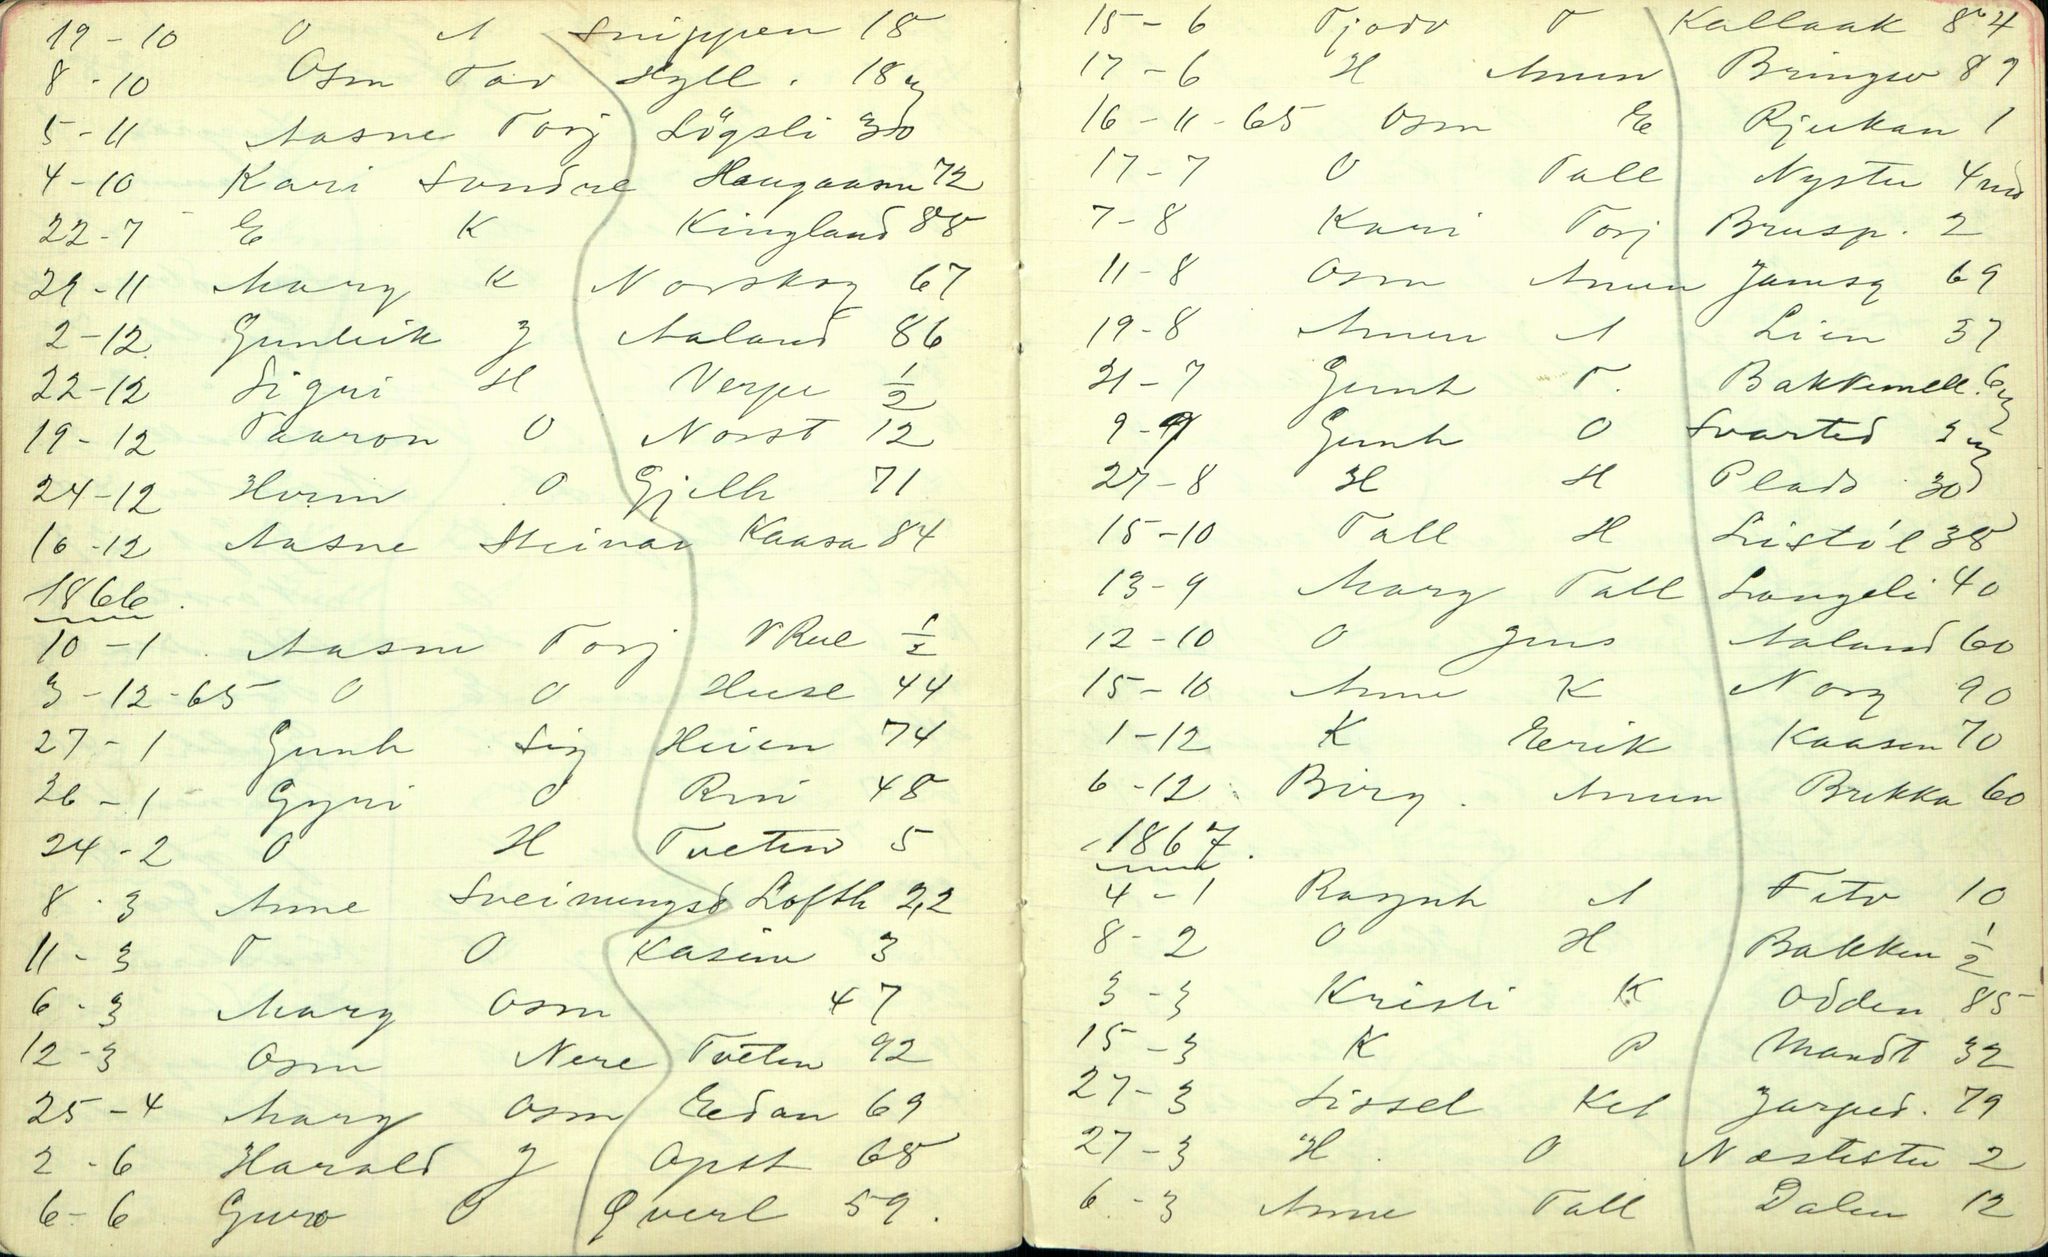 19-10 O A Snippen 18
8-10 Osm Tov Hyll. 18
5-11 Aasne Torj Lögsli 30
4-10 Kari Sondre Haugaasen 72
22-7 E K Kingland 88
29-11 Marg K Norskog 67
2-12 Gunleik J Aaland 86
22-12 Sigri H Verpe ½
19-12 Taaron O Norst 12
24-12 O Gjelh 71
16-12 Aasne Steinar Kaasa 84
1866.
10-1 Aasne Torj ½
3-12-65 O O 44
27-1 Gunh Sig Heien 74
26-1 Gyri O Rui 48
24-2 O H Tveten 5
8-3 Anne Sveinungsd Lofth 22
11-3 T O Kasin 3
6-3 Marg Osm 47
12-3 Osm Nere Tveten 92
25-4 Marg Osm Eedan 69
2-6 Harald J Opst 68
6-6 Guro O Qverl 59.
15-6 Tjodv T Kallaak 84
17-6 H Amun Bringsv 89
16-11-65 Osm E Rjukan 1
17-7 O Tall Nystu 4md
7-8 Kari Torj Brusp. 2
11-8 Osm Amun Jamsg 69
19-8 Amun A Lien 37
21-7 Gunh T. Bakkemell. 6
9-9 Gunh O Svarted 3
27-8 H H Plads 30
15-10 Tall H Listöl 38
13-9 Marg Tall Langeli 40
12-10 O Jens Aaland 60
15-10 Anne K Norg 90
1-12 K Eerik Kaasen 70
6-12 Birg. Amun Brekka 60
1867.
4-1 Ragnh A 10
8-2 O H Bakken ½
3-3 Kristi K Odden 85
15-3 K P Mandt 32
27-3 Sissel Ket Jarped. 79
27-3 H. O Næstestu 2
6-3 Anne Tall Dalen 12